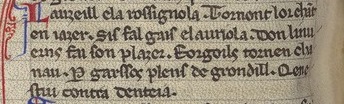 Lauzeill ela rossignola. Tornont lor chāt
en iazer. Sis fal gais el auriola. Don
fan son plazer. Eorgoils tornen
nau. P garssos plens de grondill. Q
stiu contra denteia.